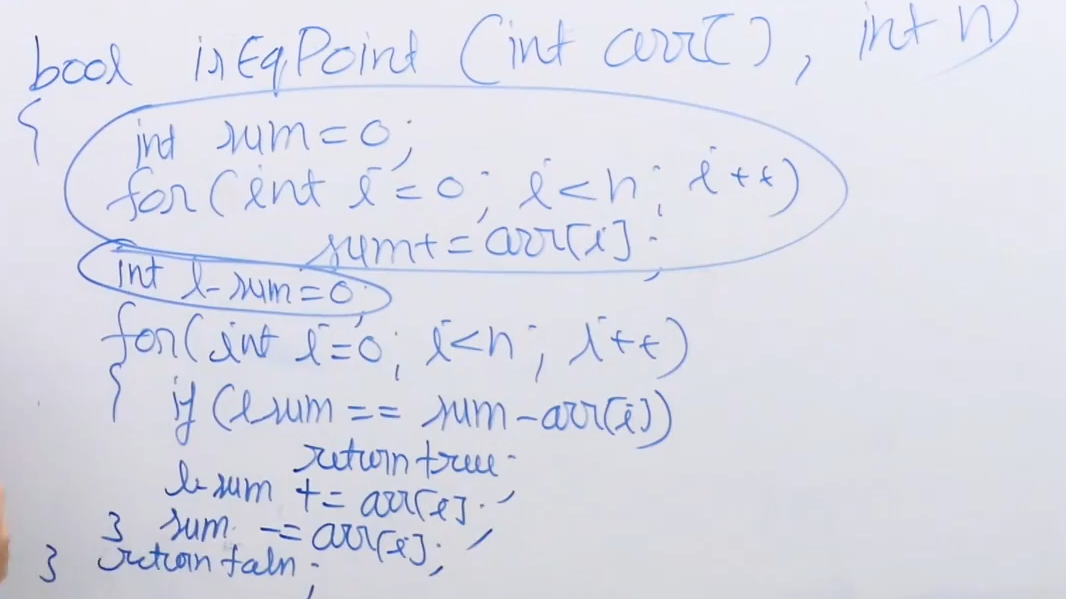 bool isEqPoint (int arr[], int n)
{
int sum=0;
for(int i=0; i<n; i++)
sum+=arr[i];
int l_sum=0;
for(int i=0; i<n; i++)
{ if (lsum == sum-arr[i])
return true;
l_sum += arr[i];
} sum -= arr[i];
} return false;